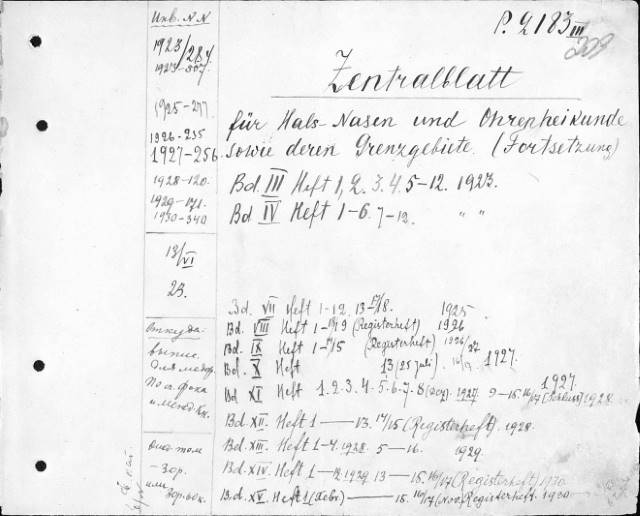 Инв. NN
P. 2183 III
209
1923/284
1923-307
Zentralblatt
1925-277
für Hals-Nasen und Ohrenheikunde
1926-235
1927-256
sowie deren Grenzgebiete. (Fortsetzung)
1928-120
Bd. III Heft 1, 2. 3. 4. 5-12. 1923.
1929-171
1930-340
Bd IV Heft 1-6. 7-12. " "
13/VI
23.
Bd. VII Heft 1-12. 13-17/18. 1925
Откуда:
Bd. VIII Heft 1- 19 (Registerheft) 1926
выпис.
Bd. IX Heft 1- 15 (Registerheft) 1926/27
для мед.
Bd. X Heft 13 (25 juli) 1927.
По
Bd XI Heft 1. 2. 3. 4. 5-6. 7-8 1927 9-15. 16/17 (Schluss) 1928.
1927.
Bd. XII. Heft 1 — 13. 14/15 (Registerheft). 1928.
Bd. XIII. Heft 1-4. 1928. 5-16. 1929.
-Зор.
Bd. XIV. Heft 1-12. 1929. 13-15. 16/17 (Registerheft) 1930
или
Bd. XV. Heft 1 (Febr) — 15. 16/17 (Nov.) Registerheft. 1930